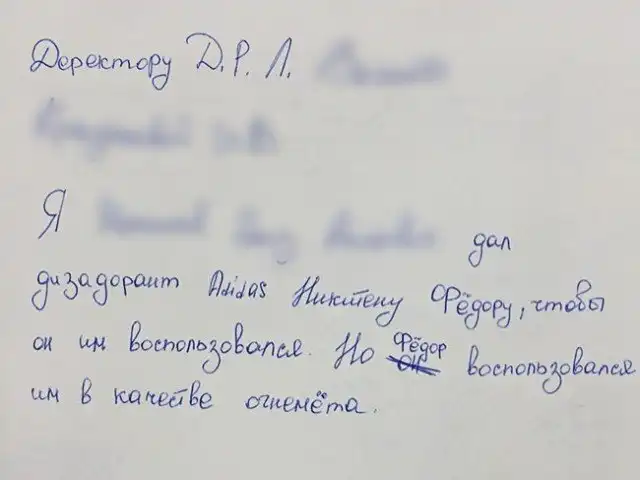 Деректору Д.Р.Л.
Я дал
дизадорант Adidas Никтену Фёдору, чтобы
он им воспользовался. Но Фёдор воспользовался
им в качестве огнемёта.